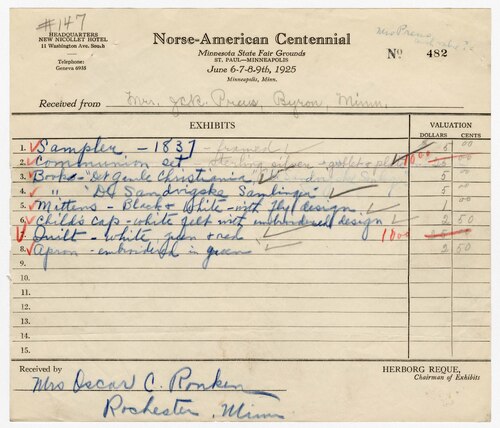 #147
HEADQUARTERS
NEW NICOLLET HOTEL
11 Washington Ave. South
Telephone:
Geneva 6935
Norse-American Centennial
Minnesota State Fair Grounds
ST. PAUL—MINNEAPOLIS
June 6-7-8-9th, 1925
Minneapolis, Minn.
Mrs Preus
No 482
Received from Mrs. Jck. Preus, Byron, Minn.
EXHIBITS VALUATION
DOLLARS CENTS
1. Sampler - 1837 - framed 5 00
2. Communion set - sterling silver 1000
3. Book - "Det Gamle Christiania" 5 00
4. " " De Sandvigske Samlinger 5 00
5. Mittens - Black & White - with design 1 00
6. Child's cap - white design 2 50
7. Quilt - white green & red 1000
8. Apron - embroidered in green 2 50
9.
10.
11.
12.
13.
14.
15.
Received by HERBORG REQUE,
Chairman of Exhibits
Mrs Oscar C. Ronken
Rochester, Minn